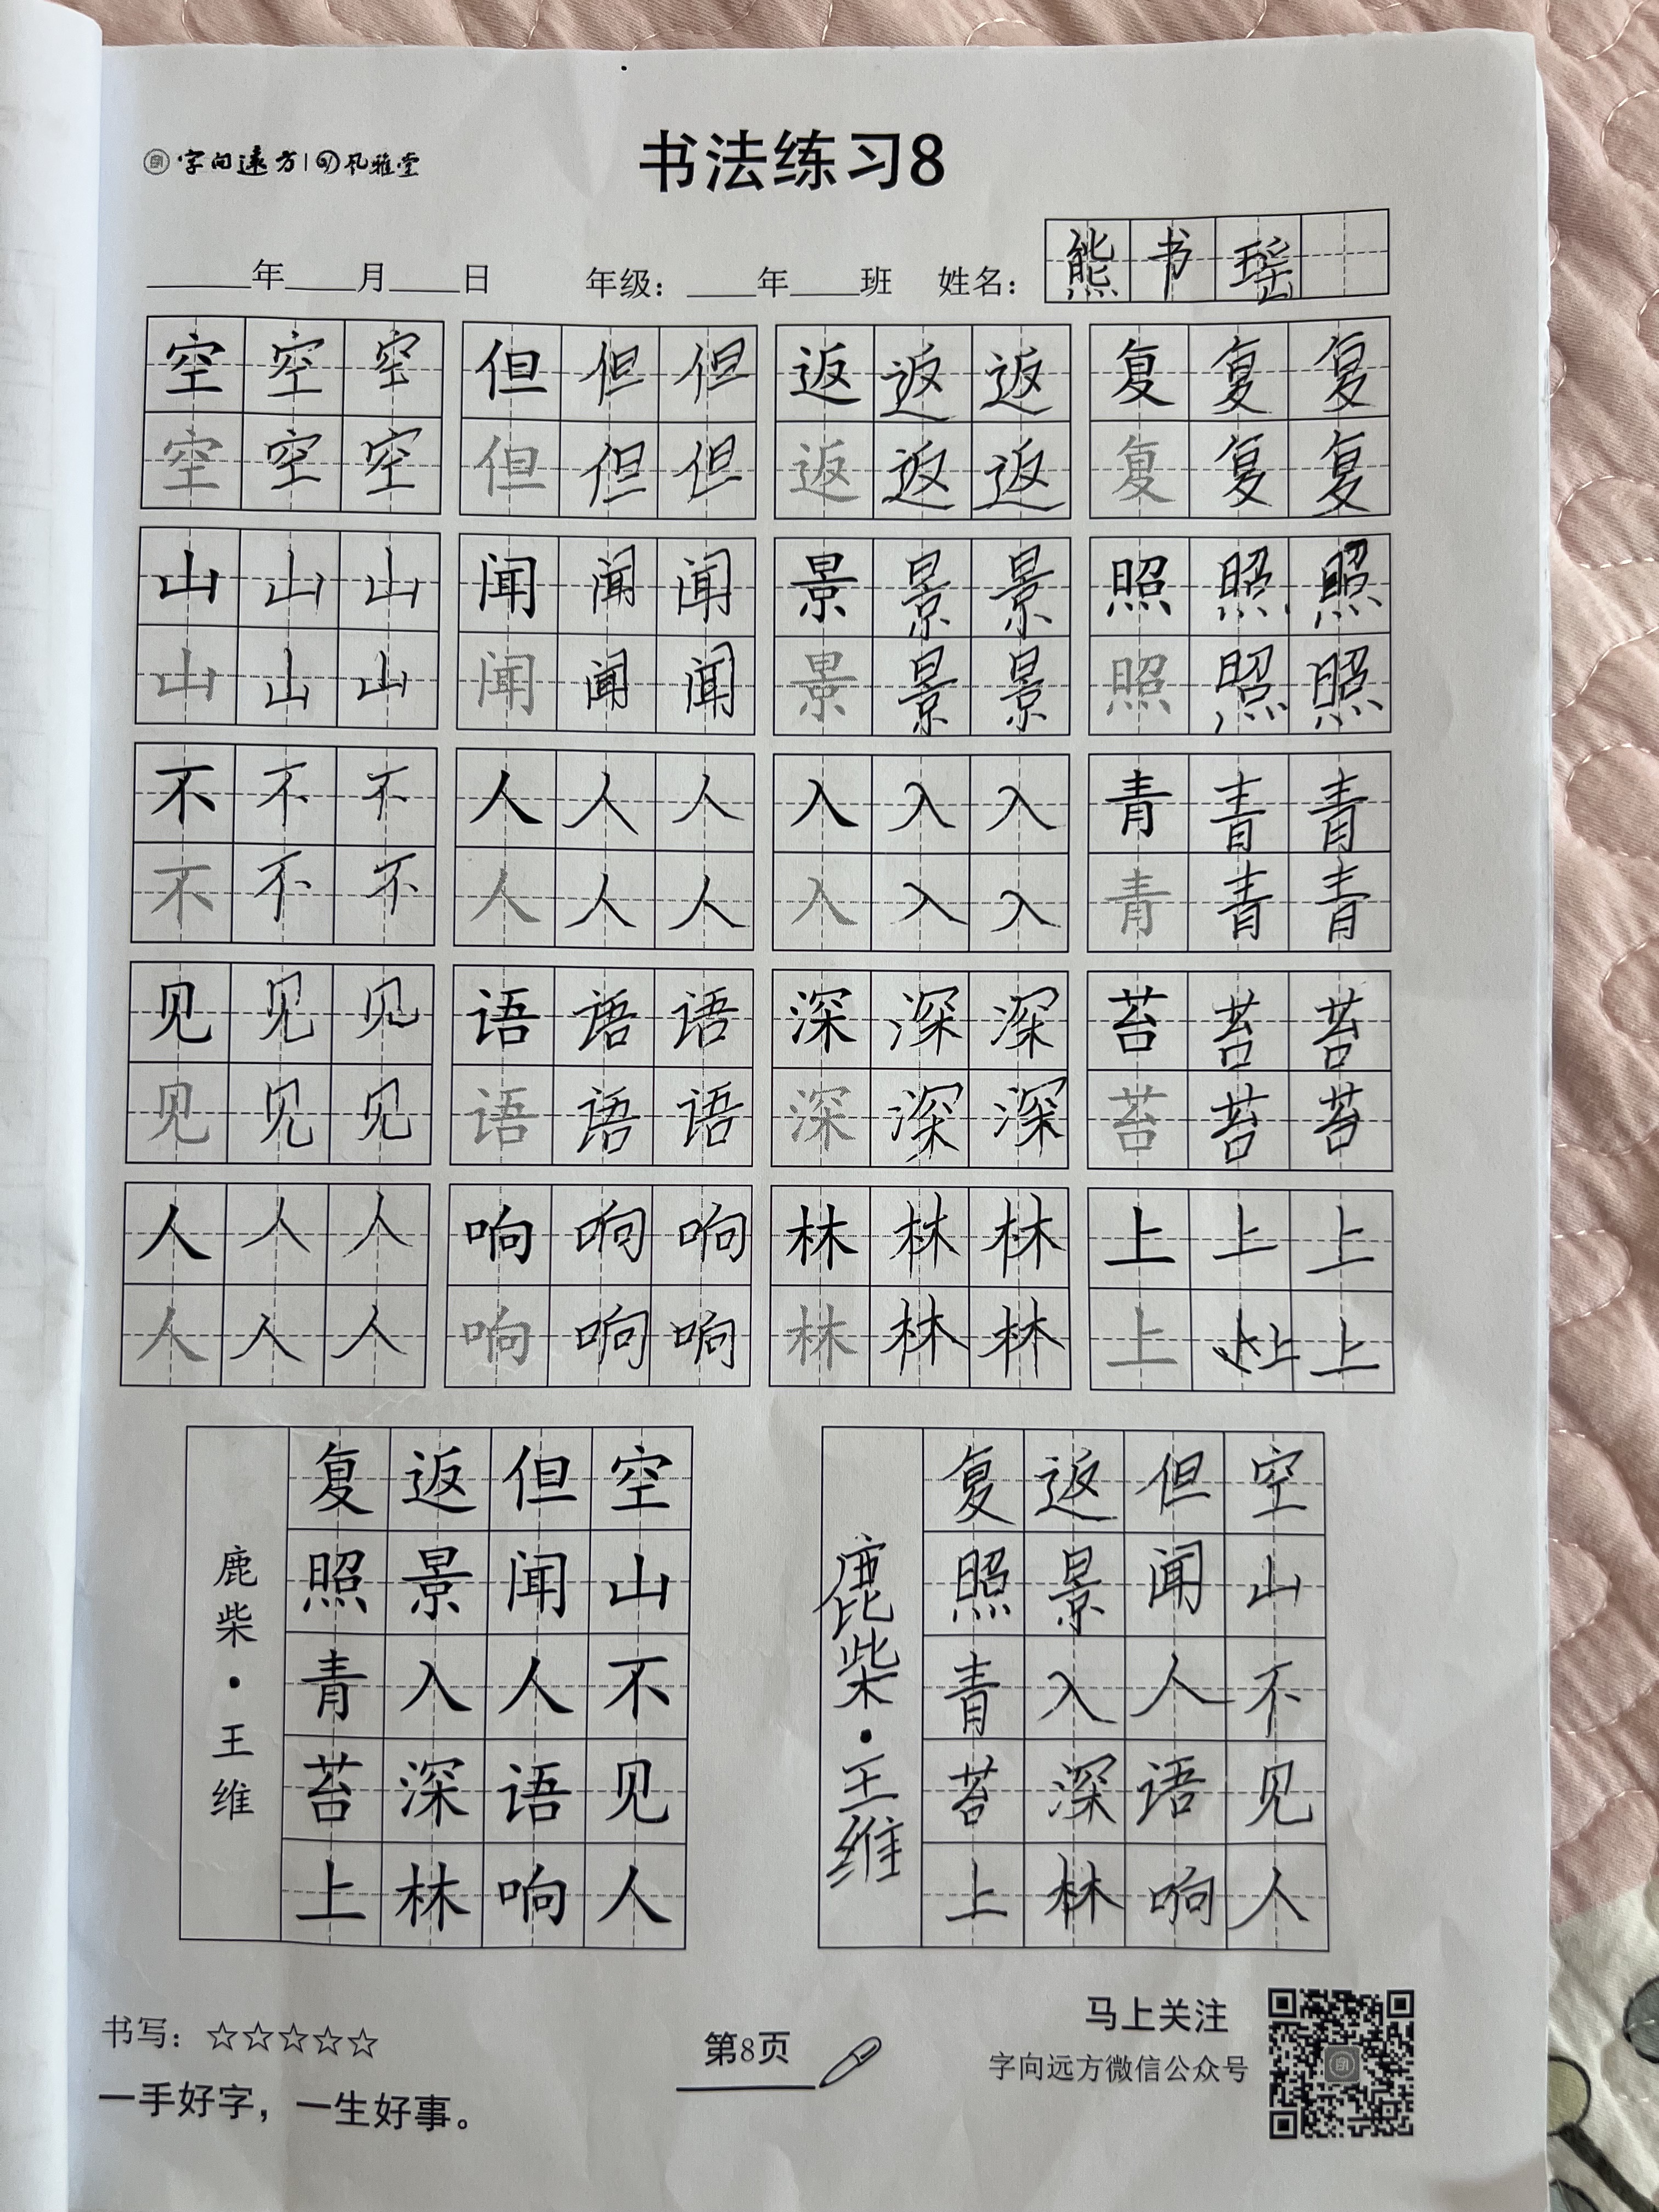 字向远方 风雅堂
书法练习8
年 月 日 年级： 年 班 姓名： 熊书瑶
空空空 但但但 返返返 复复复
空空空 但但但 返返返 复复复
山山山 闻闻闻 景景景 照照照
山山山 闻闻闻 景景景 照照照
不不不 人人人 入入入 青青青
不不不 人人人 入入入 青青青
见见见 语语语 深深深 苔苔苔
见见见 语语语 深深深 苔苔苔
人人人 响响响 林林林 上上上
人人人 响响响 林林林 上上上
空山不见人
但闻人语响
返景入深林
复照青苔上
鹿柴·王维
空山不见人
但闻人语响
返景入深林
复照青苔上
鹿柴·王维
书写：☆☆☆☆☆
一手好字，一生好事。
第8页
马上关注
字向远方微信公众号